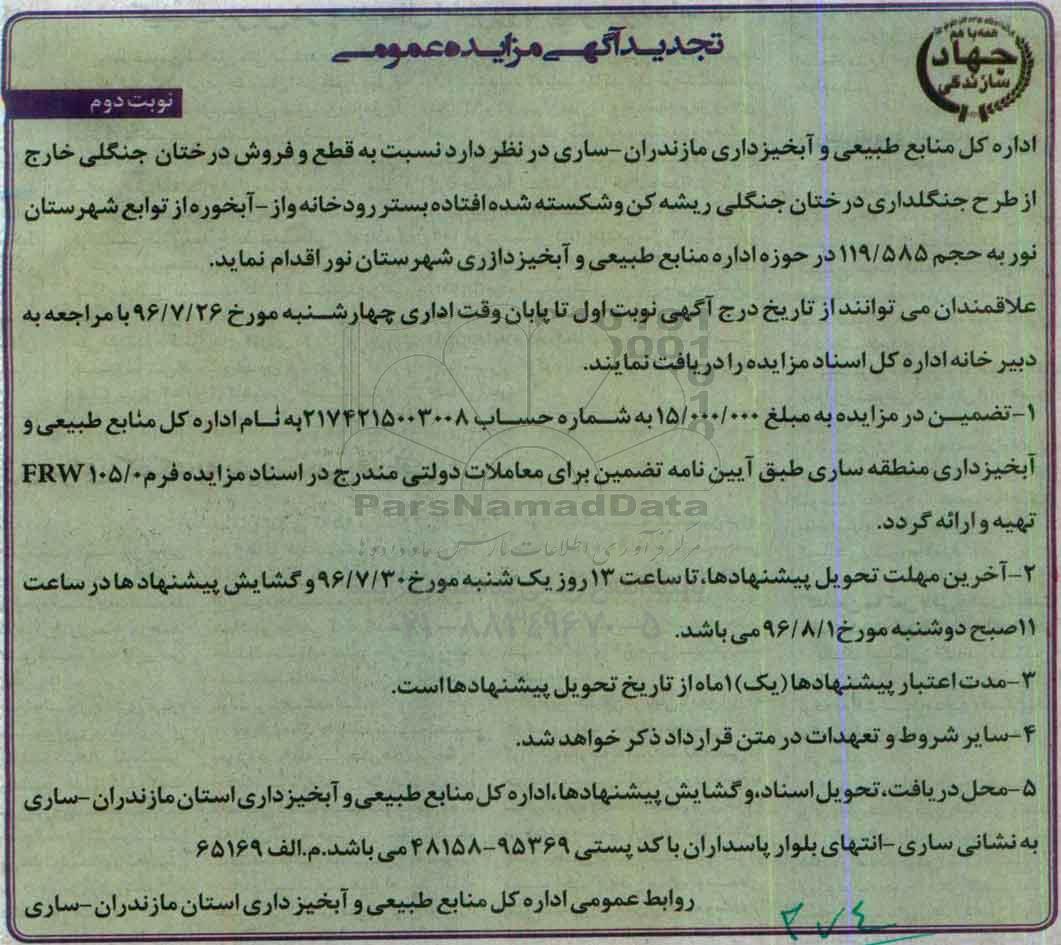 تجدید آگهی مزایده عمومی
همه با هم
جهاد
سازندگی
نوبت دوم
اداره کل منابع طبیعی و آبخیزداری مازندران-ساری در نظر دارد نسبت به قطع و فروش درختان جنگلی خارج
از طرح جنگلداری درختان جنگلی ریشه کن وشکسته شده افتاده بستر رودخانه واز-آبخوره از توابع شهرستان
نور به حجم ۱۱۹/۵۸۵ در حوزه اداره منابع طبیعی و آبخیزدازری شهرستان نور اقدام نماید.
علاقمندان می توانند از تاریخ درج آگهی نوبت اول تا پایان وقت اداری چهارشنبه مورخ ۹۶/۷/۲۶ با مراجعه به
دبیر خانه اداره کل اسناد مزایده را دریافت نمایند.
۱-تضمین در مزایده به مبلغ ۱۵/۰۰۰/۰۰۰ به شماره حساب ۲۱۷۴۲۱۵۰۰۳۰۰۸ به نام اداره کل منابع طبیعی و
آبخیزداری منطقه ساری طبق آیین نامه تضمین برای معاملات دولتی مندرج در اسناد مزایده فرم FRW ۱۰۵/۰
تهیه و ارائه گردد.
ParsNamadData
۲-آخرین مهلت تحویل پیشنهادها، تا ساعت ۱۳ روز یک شنبه مورخ ۹۶/۷/۳۰ و گشایش پیشنهادها در ساعت
۱۱صبح دوشنبه مورخ ۹۶/۸/۱ می باشد.
۳-مدت اعتبار پیشنهادها (یک) ۱ماه از تاریخ تحویل پیشنهادها است.
۴-سایر شروط و تعهدات در متن قرارداد ذکر خواهد شد.
۵-محل دریافت، تحویل اسناد، و گشایش پیشنهادها، اداره کل منابع طبیعی و آبخیزداری استان مازندران-ساری
به نشانی ساری-انتهای بلوار پاسداران با کد پستی ۹۵۳۶۹-۴۸۱۵۸ می باشد.م.الف ۶۵۱۶۹
روابط عمومی اداره کل منابع طبیعی و آبخیز داری استان مازندران-ساری
۳۷۴